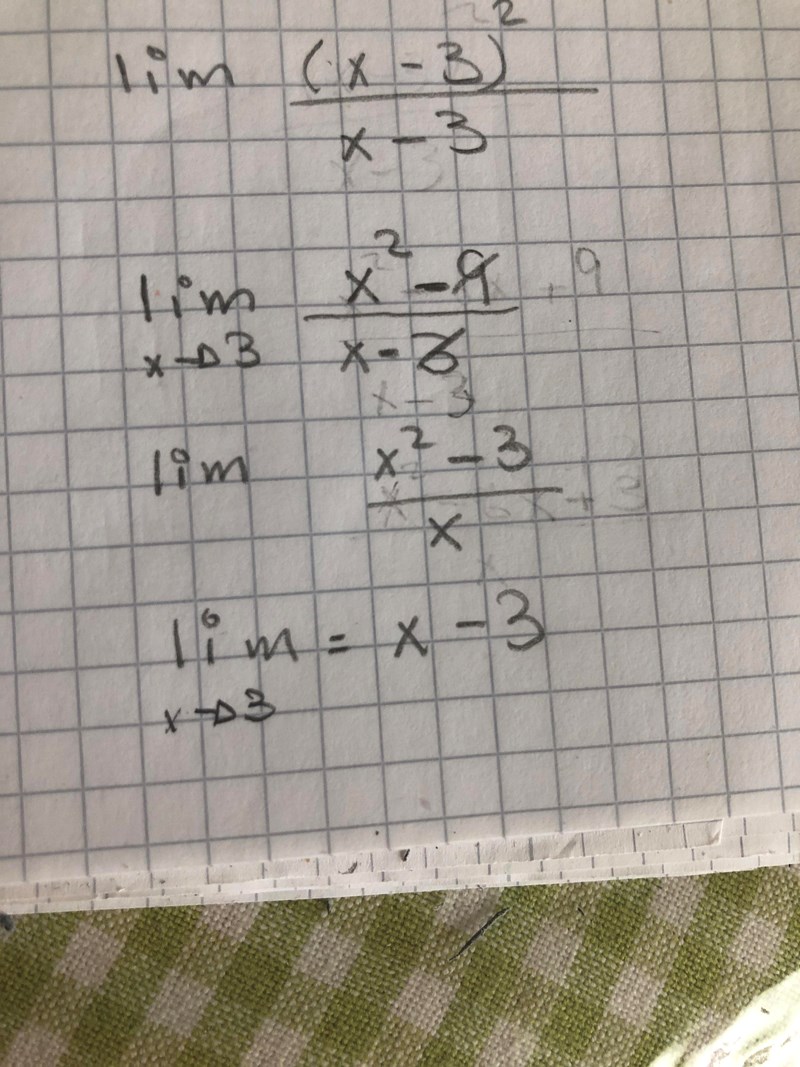 lim (x - 3)²
x - 3
lim x² - 9
x → 3 x - 3
lim x² - 3
x
lim = x - 3
x → 3